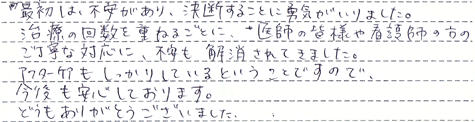 最初は不安があり、決断することに勇気がいりました。
治療の回数を重ねるごとに、医師の皆様や看護師の方の
ご丁寧な対応に、不安も解消されてきました。
アフターケアもしっかりしているということですので、
今後も安心しております。
どうもありがとうございました。